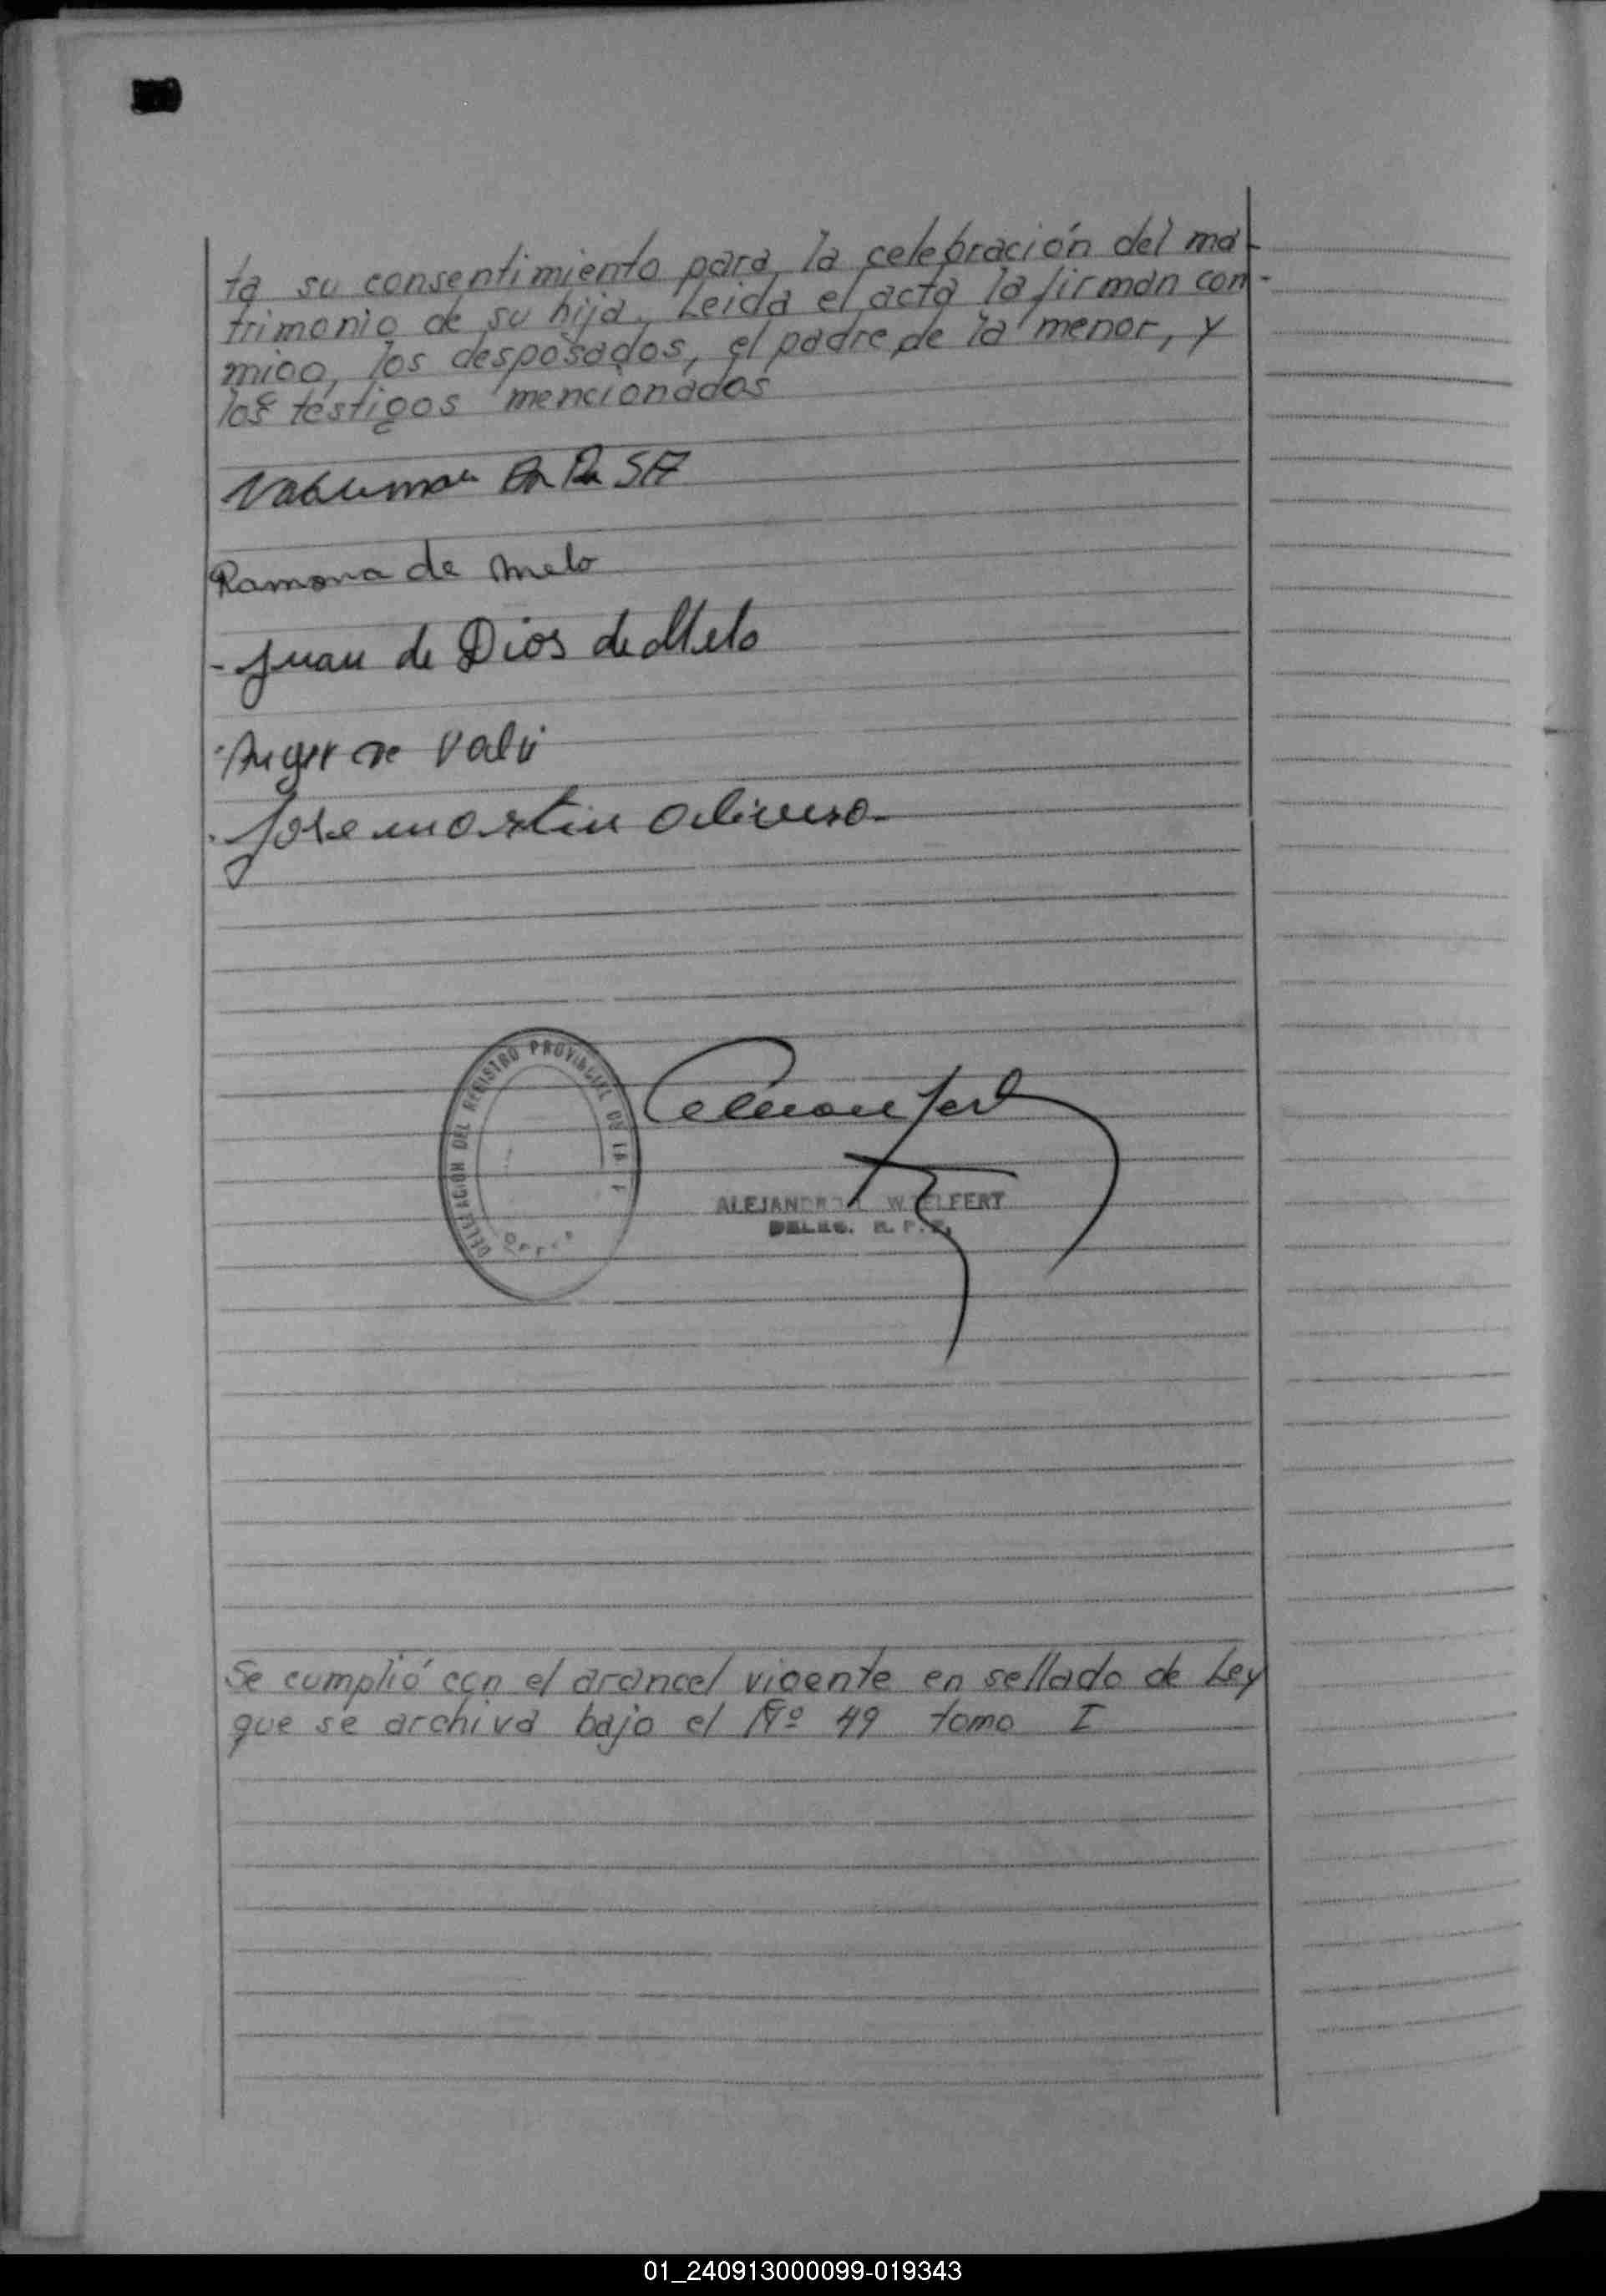 ta su consentimiento para la celebración del ma-
trimonio de su hija. Leida el acta la firman con-
migo, los desposados, el padre de la menor, y
los testigos mencionados
Ramona de Melo
- Juan de Dios de Melo
Jose Martin
DELEGACION DEL REGISTRO PROVINCIAL DE LA
ALEJANDRO W. ELFERT
DELEG. R. P. P.
Se cumplió con el arancel vigente en sellado de Ley
que se archiva bajo el Nº 49 tomo I
01_240913000099-019343